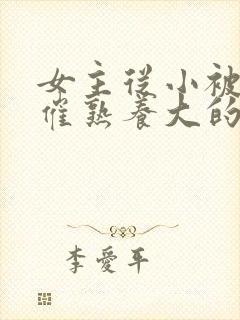 女主从小被
催熟养大的
李爱平